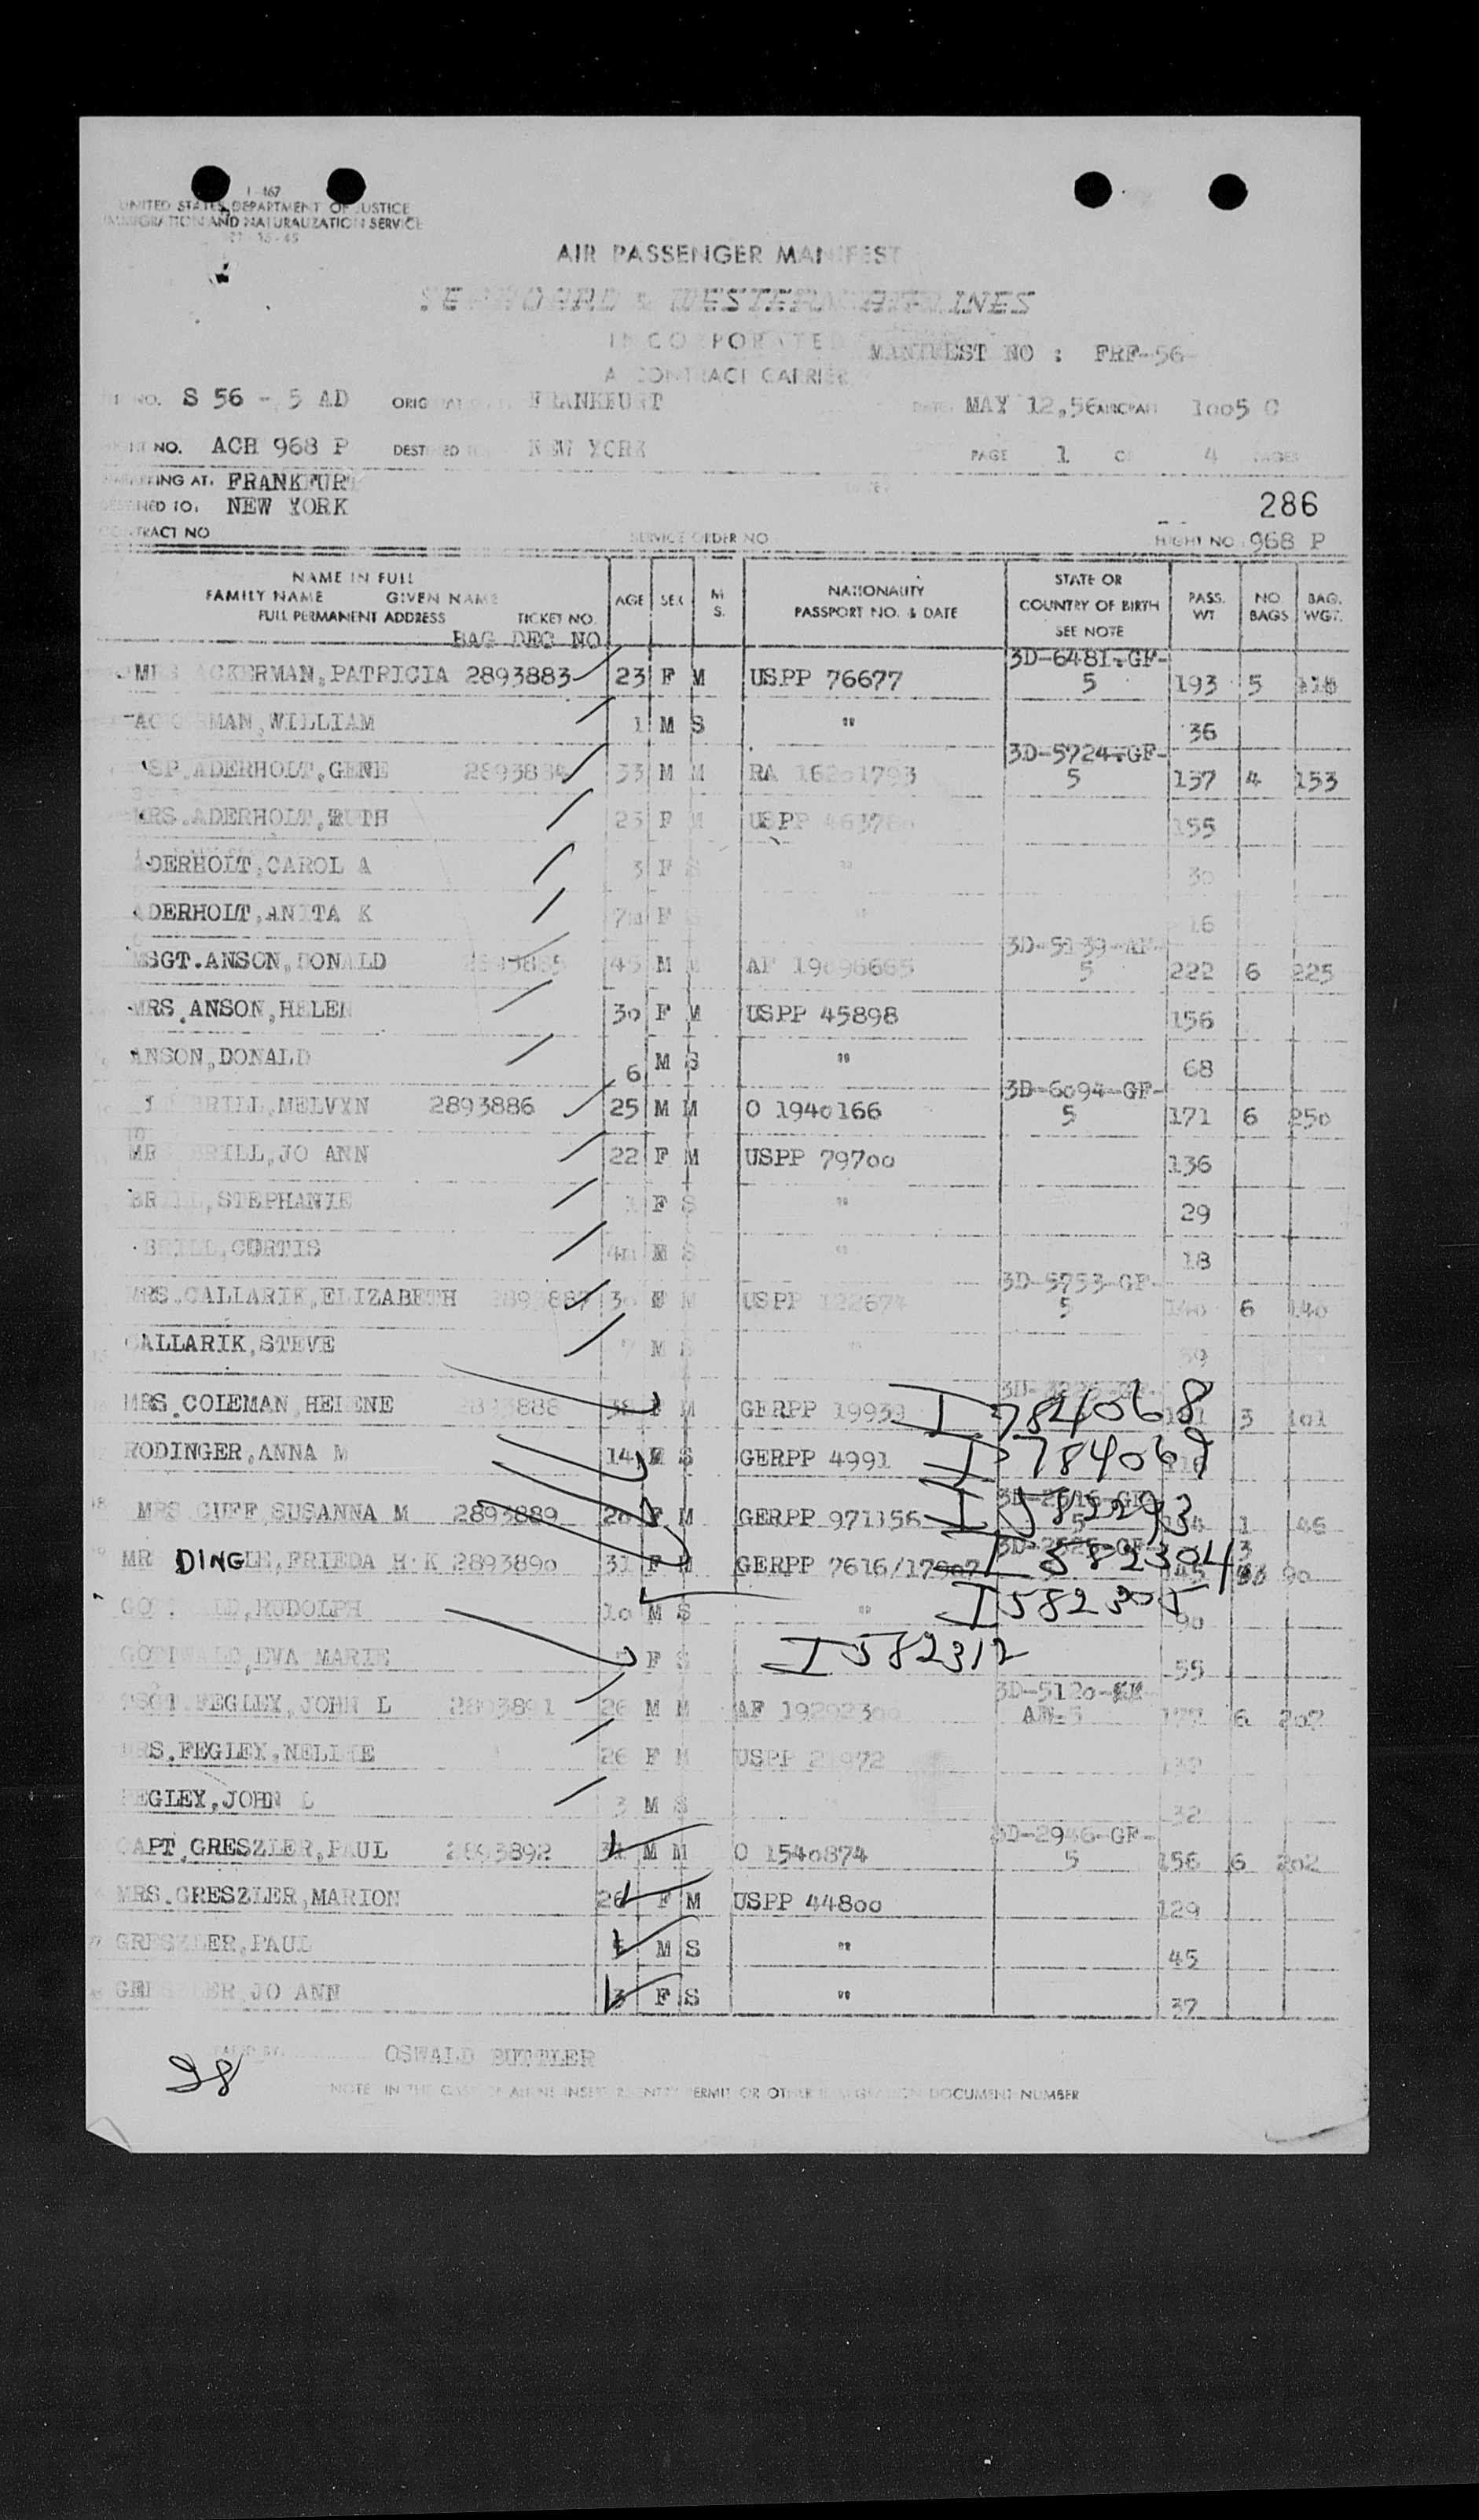 I-467
UNITED STATES DEPARTMENT OF JUSTICE
IMMIGRATION AND NATURALIZATION SERVICE
AIR PASSENGER MANIFEST
SEABOARD & WESTERN AIRLINES
INCORPORATED
MANIFEST NO : FRF-56-
A CONTRACT CARRIER
NO. S 56 - 5 AD FRANKFURT DATE MAY 12,56 AIRCRAFT 1005 C
NO. ACH 968 P DESTINED TO NEW YORK PAGE 1 OF 4 PAGES
EMBARKING AT. FRANKFURT
DESTINED TO. NEW YORK 286
CONTRACT NO SERVICE ORDER NO FLIGHT NO 968 P
NAME IN FULL
FAMILY NAME GIVEN NAME
FULL PERMANENT ADDRESS TICKET NO.
BAG DEC NO
AGE SEX M S. NATIONALITY PASSPORT NO. & DATE STATE OR COUNTRY OF BIRTH SEE NOTE PASS. WT NO. BAGS BAG. WGT.
MRS ACKERMAN,PATRICIA 2893883 23 F M USPP 76677 3D-6481-GF-5 193 5 118
ACKERMAN,WILLIAM 1 M S "" 36
SP.ADERHOLT,GENE 2893884 33 M M RA 16201793 3D-5724-GF-5 137 4 153
MRS.ADERHOLT,RUTH 23 F M USPP 463780 155
ADERHOLT,CAROL A 3 F S "" 30
ADERHOLT,ANITA K F 16
MSGT.ANSON,DONALD 2893885 45 M AF 3D-5139-AF-5 222 6 225
MRS.ANSON,HELEN 30 F M USPP 45898 156
ANSON,DONALD 6 M S "" 68
BRILL,MELVYN 2893886 25 M M O 1940166 3D-6094-GF-5 171 6 250
MRS BRILL,JO ANN 22 F M USPP 79700 136
BRILL,STEPHANIE 1 F S "" 29
BRILL,CURTIS M S "" 18
MRS.CALLARIK,ELIZABETH 2893887 F M USPP 3D-5753-GF-5 6 140
CALLARIK,STEVE M S "" 59
MRS.COLEMAN,HELENE 2893888 38 F M GERPP I 784068 3 101
RODINGER,ANNA M 14 F S GERPP 4991 I 784069
MRS CUFF SUSANNA M 2893889 F M GERPP 971156 I 582293 1 46
MRS DINGLE,FRIEDA H.K 2893890 31 F M GERPP 7616/17907 I 582304 3 90
GOTTWALD,RUDOLPH 10 M S "" I 582305 90
GOTTWALD,EVA MARIE F S I 582312 55
FEGLEY,JOHN L 2893891 26 M M AF 3D-5120- AF-5 177 6 207
MRS.FEGLEY,NELLIE 26 F M USPP
FEGLEY,JOHN L 3 M S 32
CAPT.GRESZLER,PAUL 2893892 M M O 1540874 3D-2946-GF-5 156 6 202
MRS.GRESZLER,MARION 26 F M USPP 44800 129
GRESZLER,PAUL M S "" 45
GRESZLER,JO ANN 3 F S "" 37
OSWALD BUTTLER
28
NOTE IN THE CASE OF ALIENS INSERT REENTRY PERMIT OR OTHER IMMIGRATION DOCUMENT NUMBER